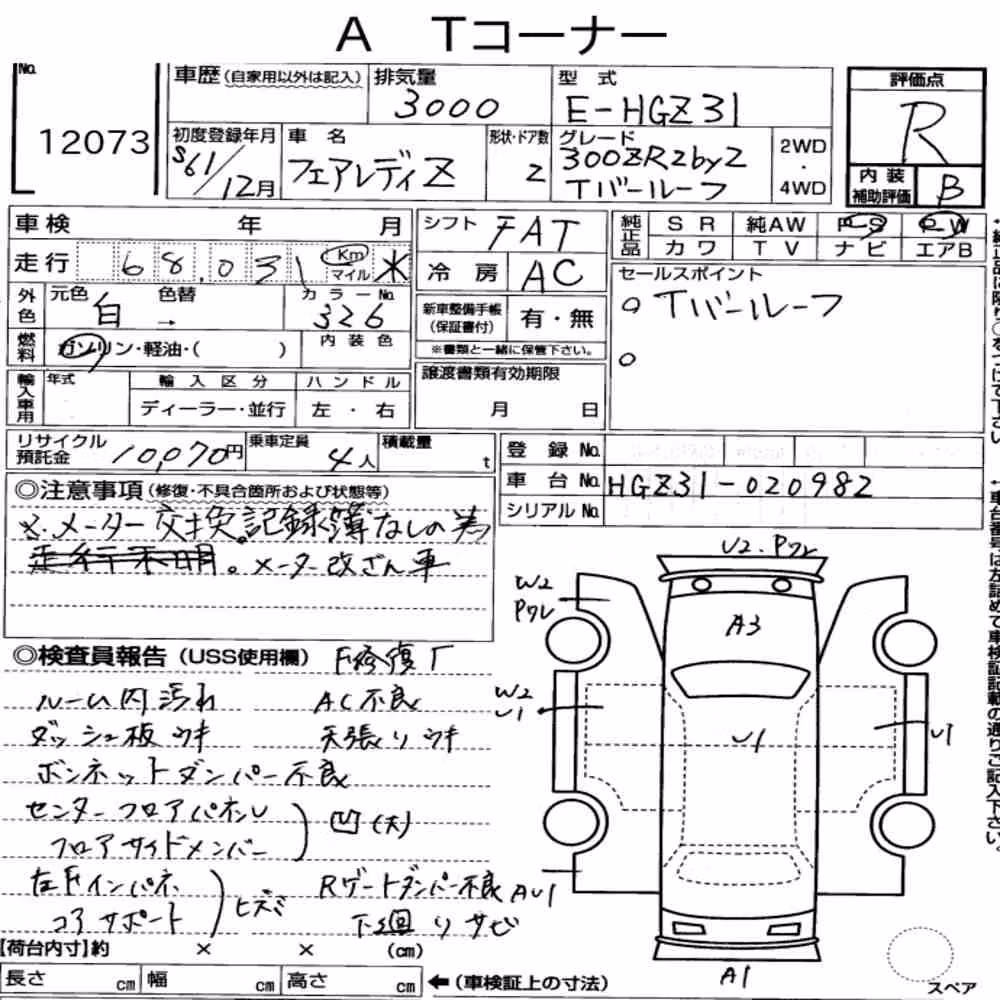 A Tコーナー
No.
12073
車歴(自家用以外は記入)
排気量
3000
型 式
E-HGZ31
評価点
R
内装補助評価 B
初度登録年月
S61/12月
車 名
フェアレディZ
形状・ドア数
2
グレード
300ZR2by2
Tバールーフ
2WD
・
4WD
車検 年 月
走行 68,031 Km マイル
シフト FAT
冷房 AC
純正品 SR 純AW PS PW
カワ TV ナビ エアB
外色 元色 白 色替 → カラーNo. 326
燃料 ガソリン・軽油・( )
内装色
新車整備手帳(保証書付) 有・無
※書類と一緒に保管下さい。
セールスポイント
○Tバールーフ
○
輸入車用 年式 輸入区分 ハンドル
ディーラー・並行 左・右
譲渡書類有効期限
月 日
リサイクル預託金 10,070円
乗車定員 4人
積載量 t
登録No.
車台No. HGZ31-020982
シリアルNo.
◎注意事項(修復・不具合箇所および状態等)
※.メーター交換記録簿なしの為
走行不明。メーター改ざん車
◎検査員報告(USS使用欄) F修復有
ルーム内汚れ AC不良
ダッシュ板ウキ 天張りウキ
ボンネットダンパー不良
センターフロアパネル
フロアサイドメンバー
凹(大)
左Fインパネ Rゲートダンパー不良
コアサポート ヒズミ 下廻りサビ
U2.Pワレ
W2
Pワレ
A3
W2
U1
U1
U1
AU1
A1
【荷台内寸】約 × × (cm)
長さ cm 幅 cm 高さ cm
←(車検証上の寸法)
スペア